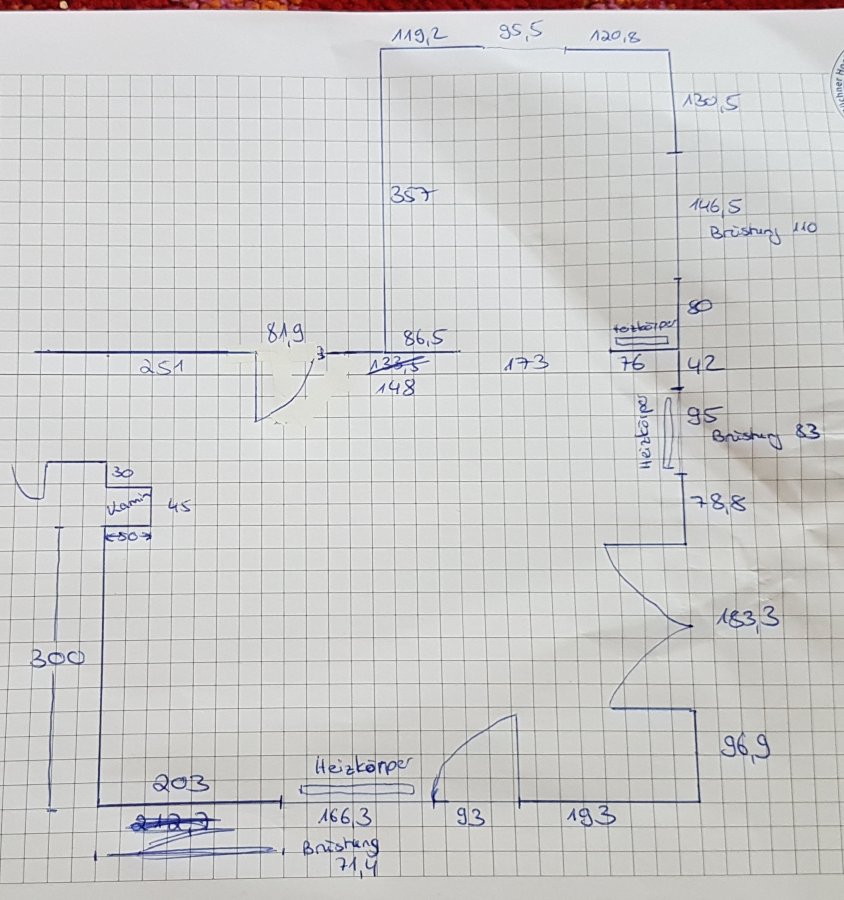 119,2 95,5 120,8
130,5
357
146,5
Brüstung 110
80
81,9
3
86,5
Heizkörper
251
133,5
148
173
76
42
Heizkörper
95
Brüstung 83
30
Kamin
45
50
78,8
183,3
300
96,9
Heizkörper
203
212,7
166,3
93
193
Brüstung
71,4